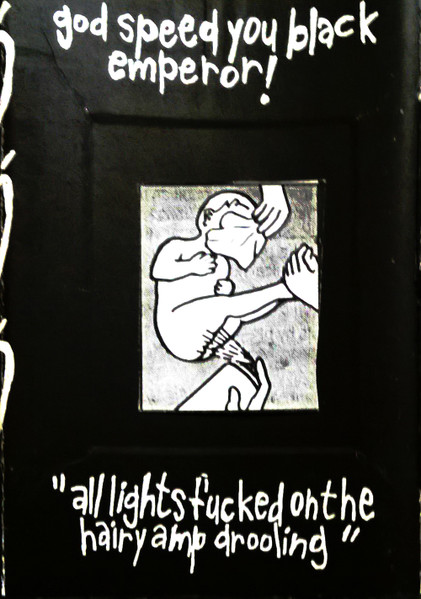 god speed you black
emperor!
"all lights fucked on the
hairy amp drooling"